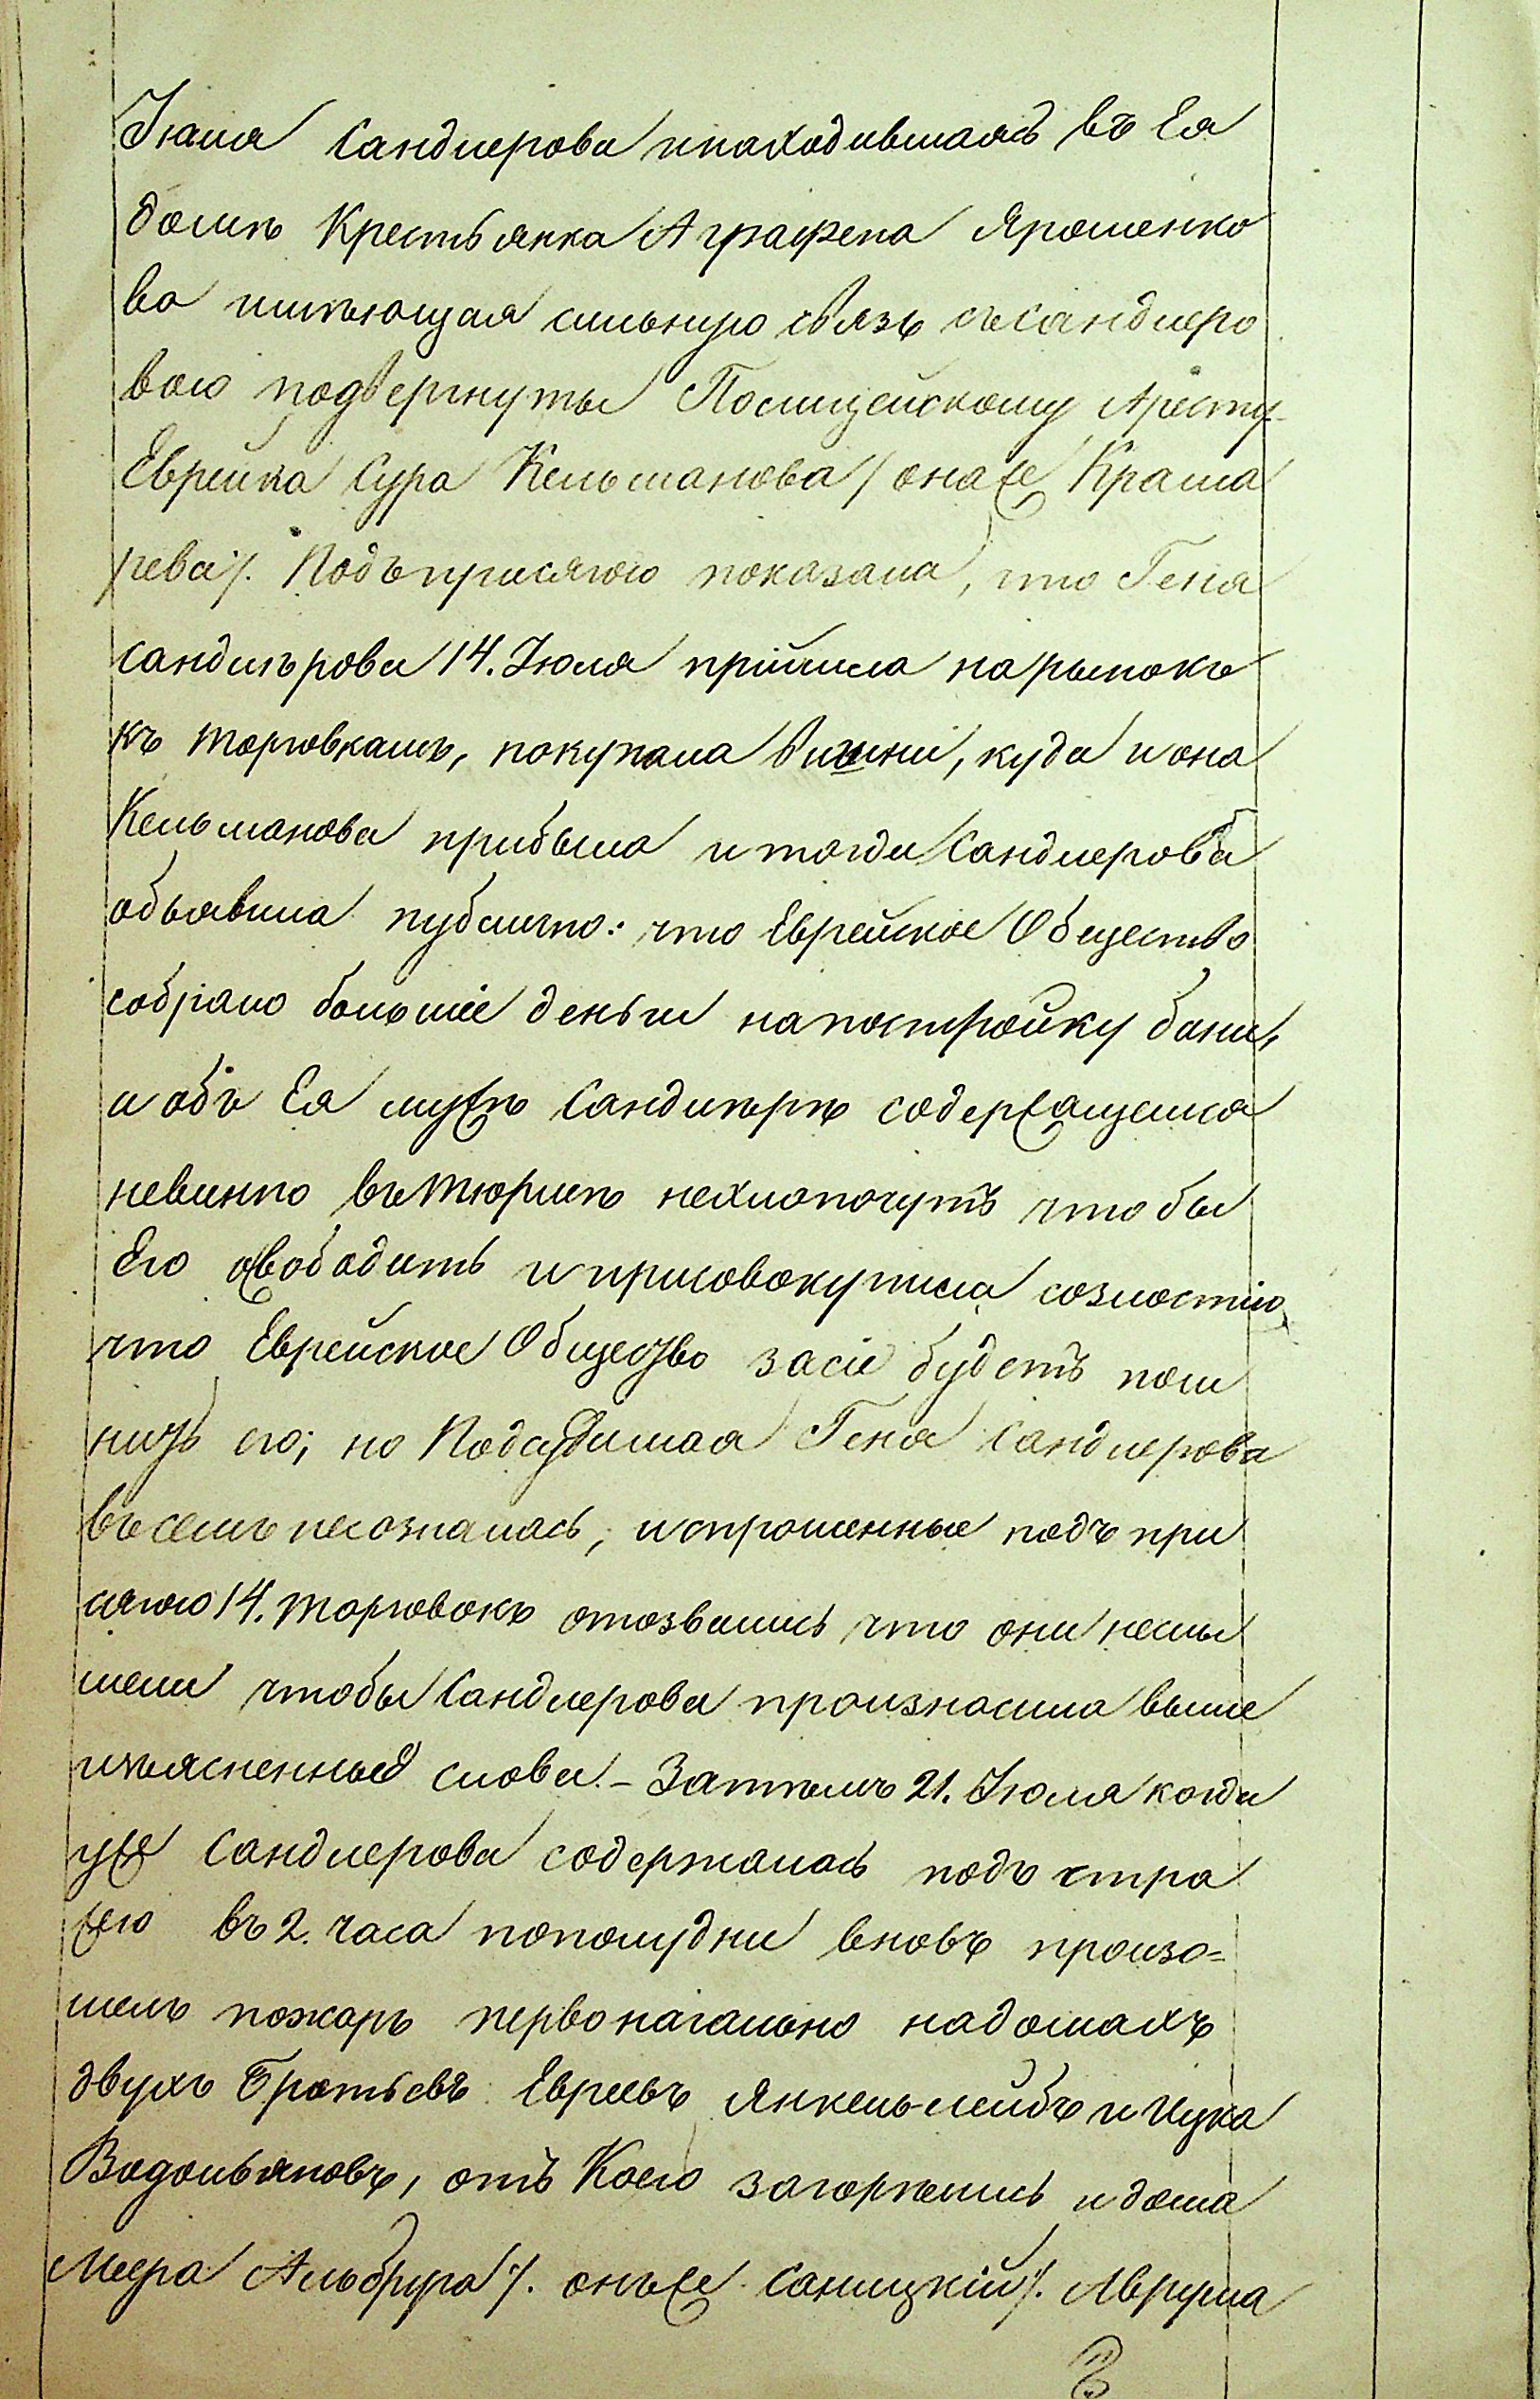 Июля Сандлерова инаходившаясь въ Ея
домѣ Крестьянка Аграфена Ярошенко
ва имѣющая сильную связь съ Сандлеро
вою подвергнуты Полицейскому Аресту
Еврейка Сура Кельманова /: онаже Крама
рева :/. Подъ присягою показала, что Геня
Сандлѣрова 14. Июля прійшла на рынокъ
къ торговкамъ, покупала Вишни, куда и она
Кельманова прибыла и тогда Сандлерова
объявила публично: что Еврейское Общество
собрало большіе деньги на постройку бани,
и объ Ея мужѣ Сандлѣрѣ содержащемся
невинно въ тюрмѣ нехлопочутъ что бы
Его освободить и присовокупила созлостію,
что Еврейское Общество засіе будетъ пом
нить его; но Подсудимая Геня Сандлерова
въ семъ несозналась, испрошенные подъ при
сягою 14. торговокъ отозвались что они неслы
шели чтобы Сандлерова произносила выше
изъясненные слова. – Затѣмъ 21. Июля когда
уже Сандлерова содержалась подъ стра
жею въ 2. часа пополудни вновь произо=
шелъ пожаръ первоначально на домахъ
двухъ Братьевъ Евреевъ Янкель-Лейбъ и Ицка
Водопьяновъ, отъ Коего загорѣлись и дома
Меера Альбрура /. онъже Саницкій /. Аврума